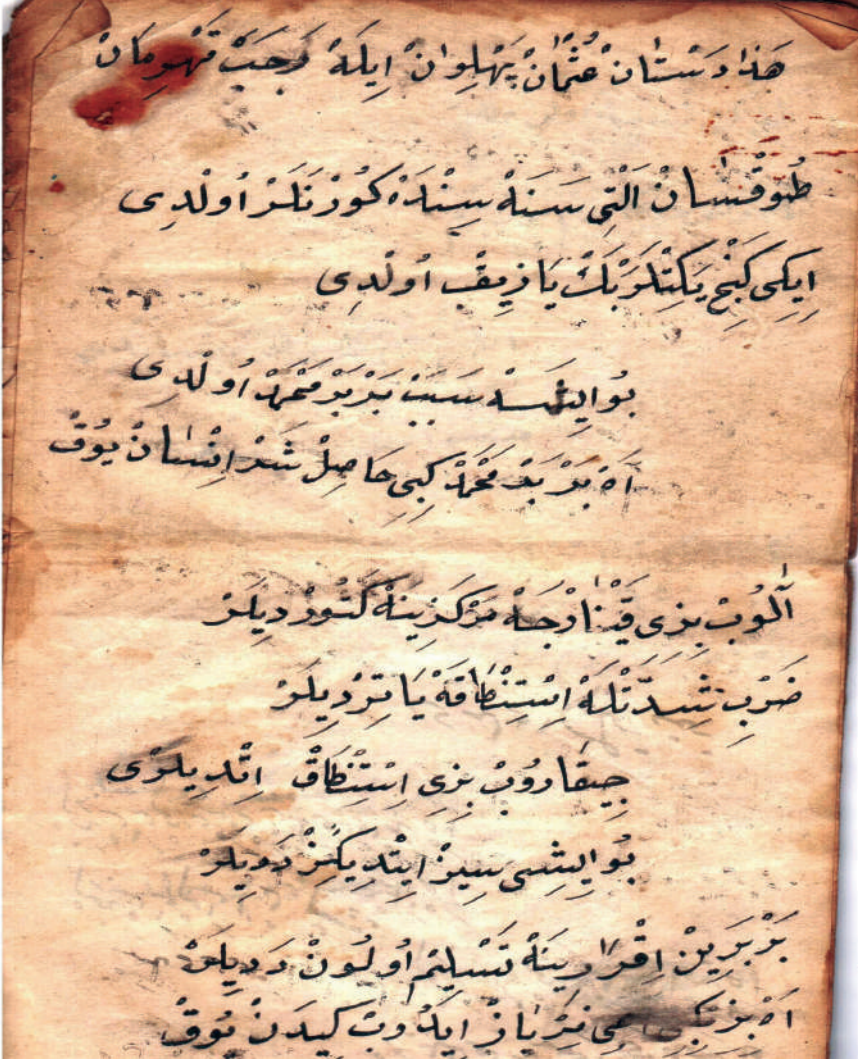 هَذَا دَسْتَانْ عُثْمَانْ پَهْلِوَانْ اِيلَهْ رَجَبْ قَهْرِمَانْ
طُوقْسَانْ اَلْتِي سَنَهْ سِينْدَهْ كُوزْنَلَرْ اُولْدِى
اِيكِى كَنْجْ يِكِتْلَرْ پَكْ يَازِيقْ اُولْدِى
بُو اِيشَهْ سَبَبْ بَرْبَرْ مَحْمَدْ اُولْدِى
اَهْ بَرْبَرْ مَحْمَدْ كِبِى حَاصِلْ شَرْ اِنْسَانْ يُوقْ
اَلُوبْ بِزِى قَيْنَارْجَهْ مَرْكَزِينَهْ كَتُورْدِيلَرْ
ضَرْبِ شِدَّتْلَهْ اِسْتِنْطَاقَهْ يَاتِرْدِيلَرْ
چِيقَارُوبْ بِزِى اِسْتِنْطَاقْ اِتْدِيلَرْى
بُو اِيشِى سِيزْ اِيتْدِيكِزْ دَدِيلَرْ
بَرْبَرِينْ اِقْرَارِينَهْ تَسْلِيمْ اُولُونْ دَدِيلَرْ
اَهْ بِزْ نِيَازْ اِيدُوبْ كِيدَنْ يُوقْ